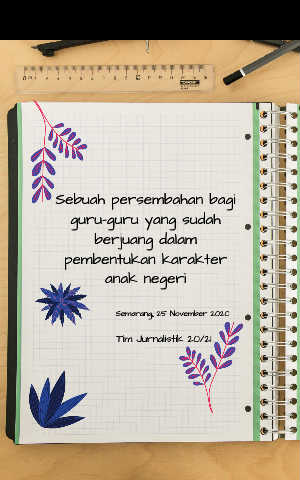 Sebuah persembahan bagi
guru-guru yang sudah
berjuang dalam
pembentukan karakter
anak negeri
Semarang, 25 November 2020
Tim Jurnalistik 20/21